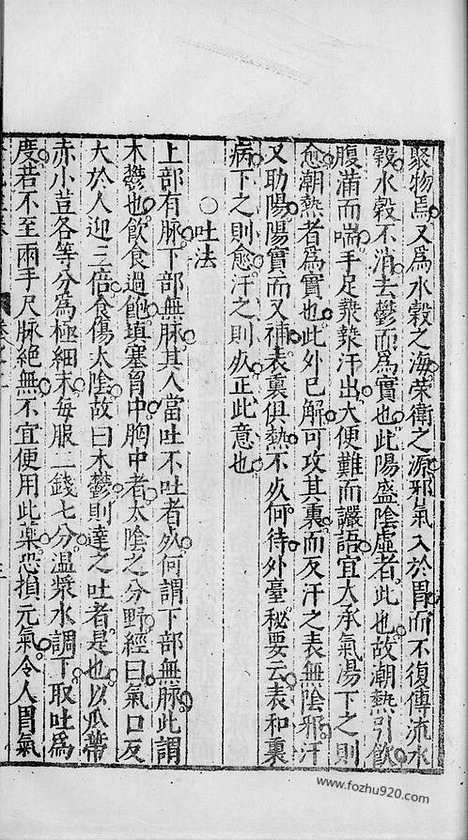 聚物焉又為水穀之海榮衛之源邪氣入於胃而不復傳流水
穀水穀不消去鬱而為實也此陽盛陰虛者此也故潮熱引飲
腹滿而喘手足漐漐汗出大便難而讝語宜大承氣湯下之則
愈潮熱者為實也此外已解可攻其裏而反汗之表無陰邪汗
又助陽陽實而又補表裏俱熱不死何待外臺秘要云表和裏
病下之則愈汗之則死正此意也
○吐法
上部有脉下部無脉其人當吐不吐者死何謂下部無脉此謂
木鬱也飲食過飽填塞胷中胸中者太陰之分野經曰氣口反
大於人迎三倍食傷太陰故曰木鬱則達之吐者是也以瓜蔕
赤小豆各等分為極細末每服一錢七分温漿水調下取吐為
度若不至兩手尺脉絕無不宜便用此藥恐損元氣令人胃氣
www.fozhu920.com